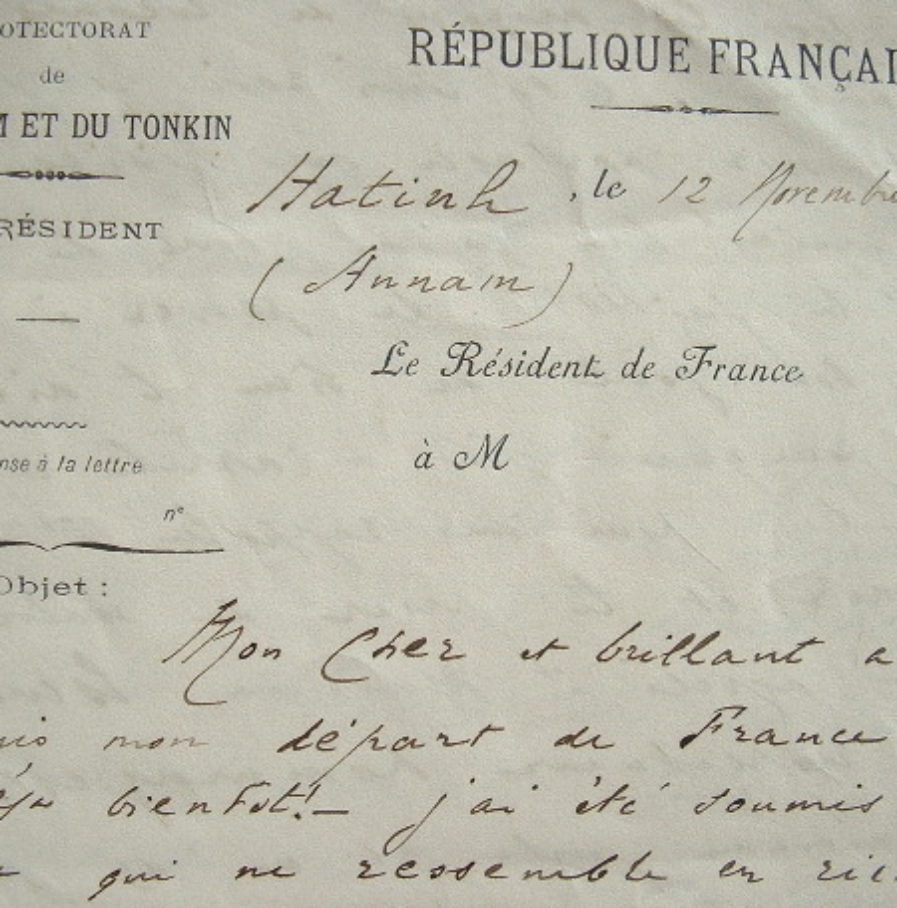 OTECTORAT
de
M ET DU TONKIN
RÉSIDENT
nse à la lettre
nº
Objet :
RÉPUBLIQUE FRANÇAI
Hatinh, le 12 Novembre
(Annam)
Le Résident de France
à M
Mon Cher et brillant a
uis mon départ de France
éja bientôt! – j'ai été soumis
qui ne ressemble en rien